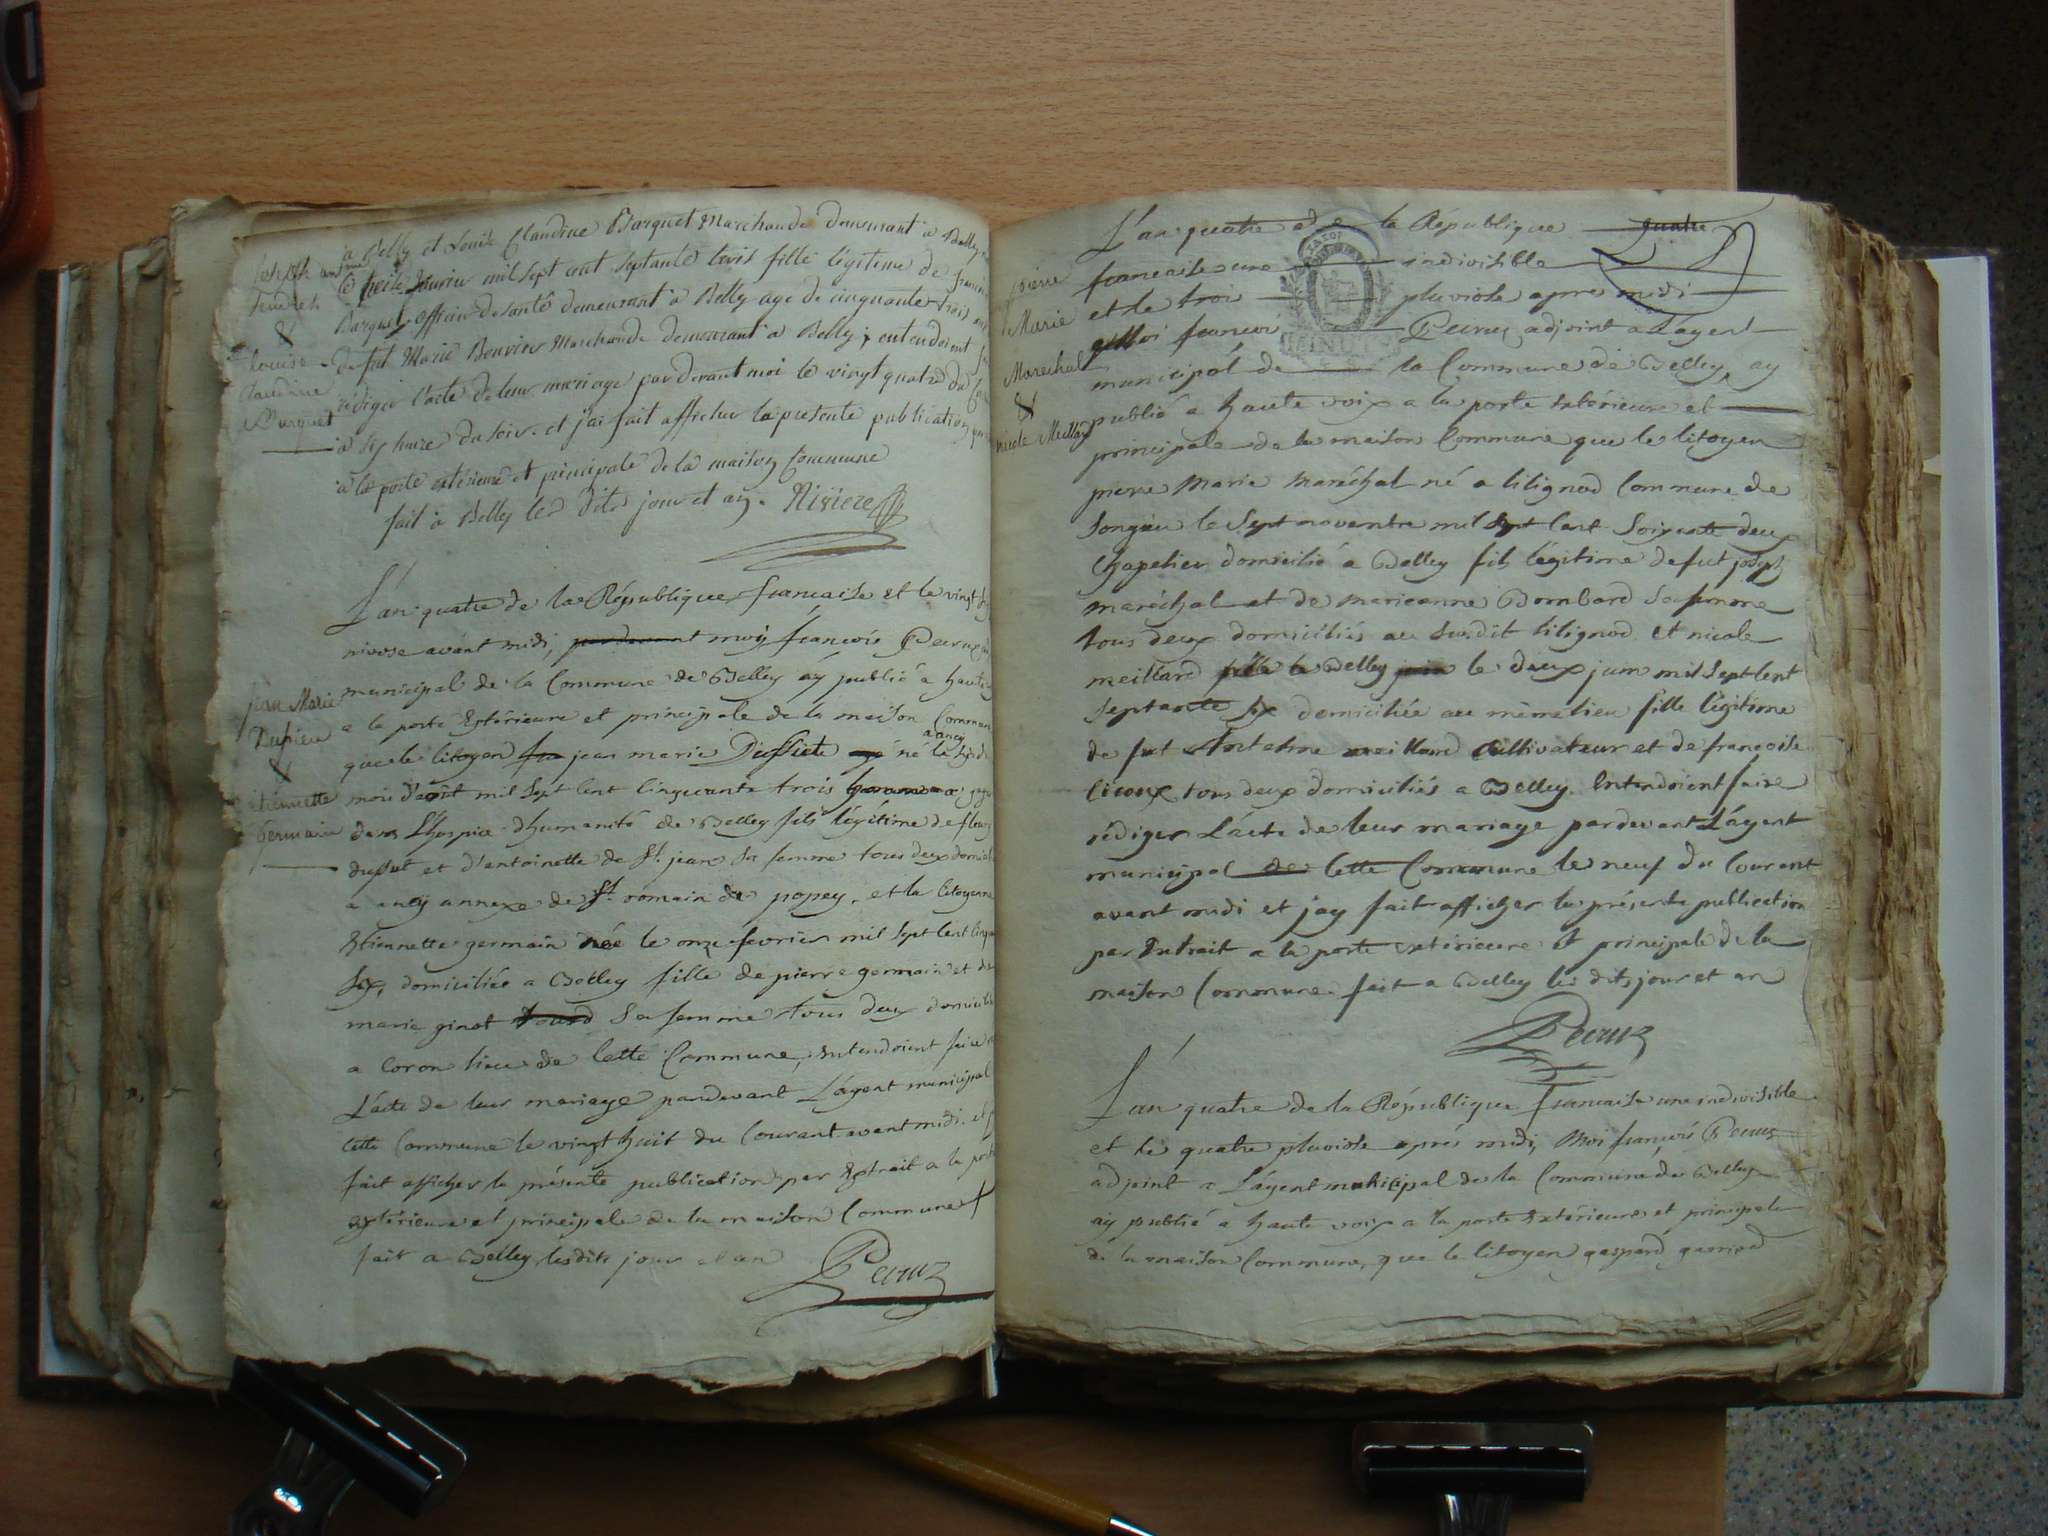 à Belly et Louise Claudine Barquet Marchande demeurant à Belly
le treize Janvier mil sept cent septante trois fille légitime de
Barquet officier de santé demeurant à Belly age de cinquante trois
de fut Marie Bouvier Marchande demeurant à Belly, entendoient
rédiger l'acte de leur mariage par devant moi le vingt quatre du
à six heure du soir. et j'ai fait afficher la presente publication
à la porte extérieure et principale de la maison Commune
fait à Belley les dits jour et an. Risiere
Joseph
&
Louise
Claudine
Barquet
L'an quatre de la République francaise et le vingt
nivose avant midi, pardevant moi, françois Pecruz
municipal de la Commune de Belley ay publié a haute
a la porte Extérieure et principale de la maison Commun
que le Citoyen jean marie Duffiete né a ancy le six d
mois d'août mil sept Cent Cinquante trois
dans L'hospice d'humanité de Belley fils légitime de fleury
duffut et d'antoinette de St. jean sa femme tous deux domicil
a ancy annexe de St. romain de popey, et la Citoyenne
Etiennette germain née le onze fevrier mil sept Cent Cinqu
Six, domiciliée a Belley fille de pierre germain et de
marie ginot sa femme tous deux domicil
a Coron lieu de Cette Commune, Entendoient faire
L'acte de leur mariage pardevant L'agent municipal
Cette Commune le vingt huit du Courant avant midi. et
fait afficher la présente publication par Extrait a la porte
extérieure et principale de la maison Commune
fait a Belley lesdits jour et an
Pecruz
jean Marie
&
étiennette
Germain
L'an quatre de la République quatre
francaise une indivisible
et le trois pluviose apres midi
Moi francois Pecruz adjoint a L'agent
municipal de la Commune de Belley, ay
publié a haute voix a la porte Extérieure et
principale de la maison Commune que le Citoyen
pierre Marie Maréchal né a lilignod Commune de
Songieu le Sept novembre mil Sept Cent Soixante deux
Chapelier domicilié a Belley fils légitime de fut joseph
maréchal et de marieanne Bombard sa femme
tous deux domiciliés au susdit lilignod. et nicole
meillard fille a Belley le deux juin mil Sept Cent
Septante Six domiciliée au même lieu fille légitime
de fut Antelme meillard Cultivateur et de francoise
tous deux domiciliés a Belley. Entendoient faire
rédiger L'acte de leur mariage pardevant L'agent
municipal de Cette Commune le neuf du Courant
avant midi et jay fait afficher la présente publication
par Extrait a la porte extérieure et principale de la
maison Commune. fait a Belley les dits jour et an
Pecruz
pierre
Marie
Marechal
&
nicole Meillard
MINUTE
L'an quatre de la République francaise une indivisible
et le quatre pluviose après midi, Moi françois Pecruz
adjoint a L'agent municipal de la Commune de Belley
ay publié a haute voix a la porte Extérieure et principale
de la maison Commune, que le Citoyen gaspard